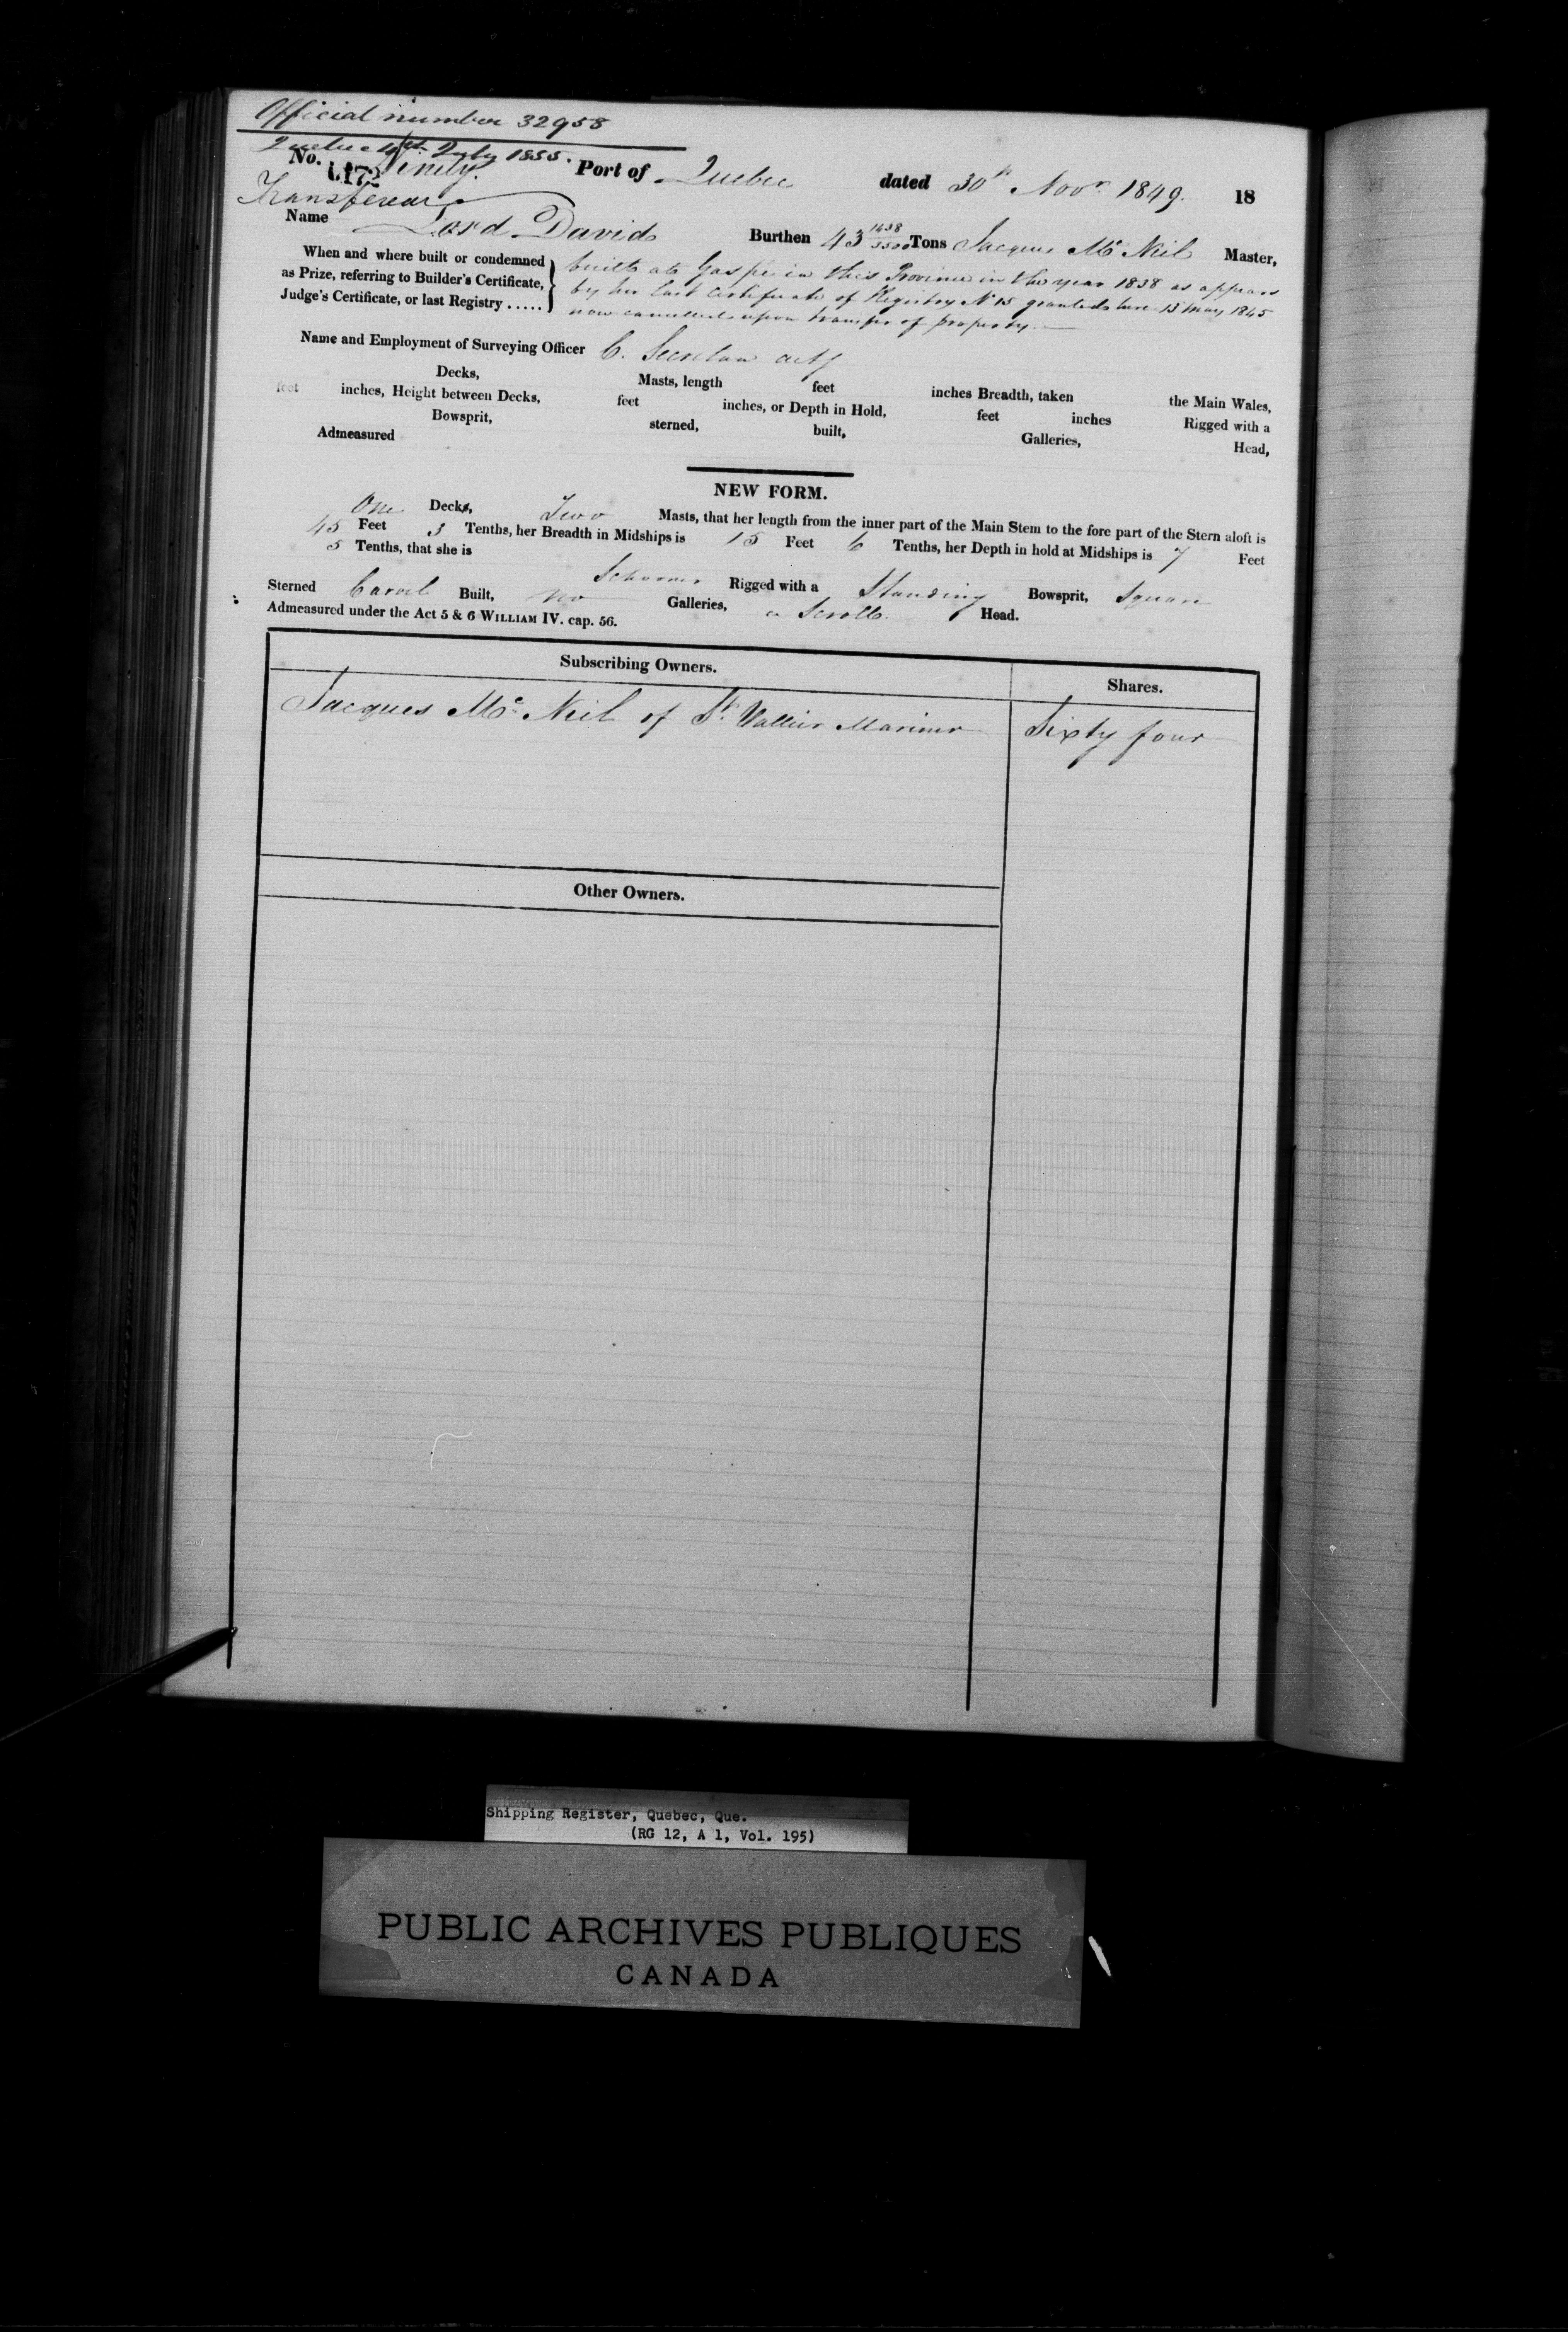 Official number 32958
Quebec 4th July 1855.
No. 172 Ninety. Port of Quebec dated 30th Novr 1849. 18
Transferred
Name Lord David Burthen 43 1438/3500 Tons Jacques Mc Neil Master,
When and where built or condemned as Prize, referring to Builder's Certificate, Judge's Certificate, or last Registry .....
built at Gaspé in this Province in the year 1838 as appears
by her last Certificate of Registry No 15 granted here 15 May 1845
now cancelled upon transfer of property
Name and Employment of Surveying Officer C. Secretan actg
Decks, Masts, length feet inches Breadth, taken the Main Wales,
feet inches, Height between Decks, feet inches, or Depth in Hold, feet inches Rigged with a
Bowsprit, sterned, built, Galleries, Head,
Admeasured
NEW FORM.
One Decks, Two Masts, that her length from the inner part of the Main Stem to the fore part of the Stern aloft is
45 Feet 3 Tenths, her Breadth in Midships is 15 Feet 6 Tenths, her Depth in hold at Midships is 7 Feet
5 Tenths, that she is Schooner Rigged with a Standing Bowsprit, Square
Sterned Carvel Built, no Galleries, a Scroll Head.
Admeasured under the Act 5 & 6 WILLIAM IV. cap. 56.
Subscribing Owners. Shares.
Jacques Mc Neil of St Vallier Mariner Sixty four
Other Owners.
Shipping Register, Quebec, Que.
(RG 12, A 1, Vol. 195)
PUBLIC ARCHIVES PUBLIQUES
CANADA